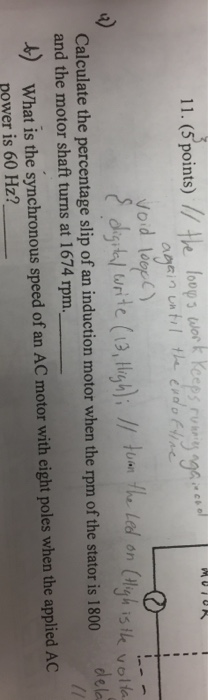 MOTOR
11. (5 points) // the loops work keeps runing again and
3
again until the end of line
void loop()
{ digital write (13, High); // turn the led on (High is the volta
dela
//
a) Calculate the percentage slip of an induction motor when the rpm of the stator is 1800
and the motor shaft turns at 1674 rpm.
b) What is the synchronous speed of an AC motor with eight poles when the applied AC
power is 60 Hz?